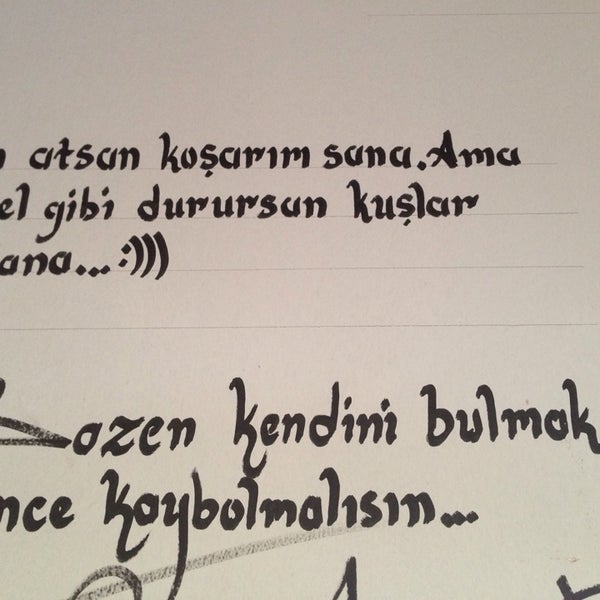 atsan koşarım sana. Ama
el gibi durursan kuşlar
ana... :)))
Bazen kendini bulmak
nce kaybolmalısın...